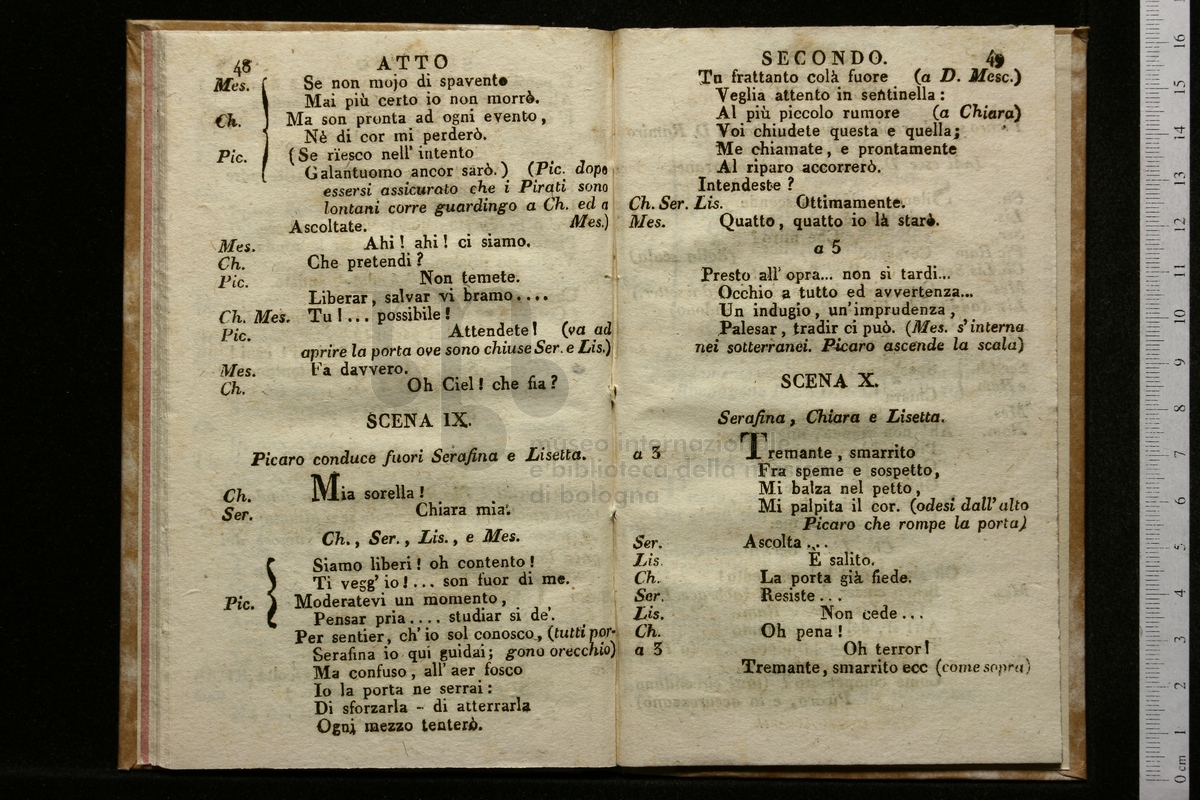 48 ATTO
Mes. Se non mojo di spavento
Mai più certo io non morrò.
Ch. Ma son pronta ad ogni evento,
Nè di cor mi perderò.
Pic. (Se rïesco nell' intento
Galantuomo ancor sarò.) (Pic. dopo
essersi assicurato che i Pirati sono
lontani corre guardingo a Ch. ed a
Ascoltate. Mes.)
Mes. Ahi! ahi! ci siamo.
Ch. Che pretendi?
Pic. Non temete.
Liberar, salvar vi bramo....
Ch. Mes. Tu!... possibile!
Pic. Attendete! (va ad
aprire la porta ove sono chiuse Ser. e Lis.)
Mes. Fa davvero.
Ch. Oh Ciel! che fia?
SCENA IX.
Picaro conduce fuori Serafina e Lisetta.
Ch. Mia sorella!
Ser. Chiara mia.
Ch., Ser., Lis., e Mes.
Siamo liberi! oh contento!
Ti vegg' io!... son fuor di me.
Pic. Moderatevi un momento,
Pensar pria.... studiar si de'.
Per sentier, ch' io sol conosco, (tutti por-
Serafina io qui guidai; gono orecchio)
Ma confuso, all' aer fosco
Io la porta ne serrai:
Di sforzarla - di atterrarla
Ogni mezzo tenterò.
SECONDO. 49
Tu frattanto colà fuore (a D. Mesc.)
Veglia attento in sentinella:
Al più piccolo rumore (a Chiara)
Voi chiudete questa e quella;
Me chiamate, e prontamente
Al riparo accorrerò.
Intendeste?
Ch. Ser. Lis. Ottimamente.
Mes. Quatto, quatto io là starò.
a 5
Presto all' opra... non si tardi...
Occhio a tutto ed avvertenza...
Un indugio, un' imprudenza,
Palesar, tradir ci può. (Mes. s' interna
nei sotterranei. Picaro ascende la scala)
SCENA X.
Serafina, Chiara e Lisetta.
a 3 Tremante, smarrito
Fra speme e sospetto,
Mi balza nel petto,
Mi palpita il cor. (odesi dall' alto
Picaro che rompe la porta)
Ser. Ascolta...
Lis. È salito.
Ch. La porta già fiede.
Ser. Resiste...
Lis. Non cede...
Ch. Oh pena!
a 3 Oh terror!
Tremante, smarrito ecc (come sopra)
museo internazionale
e biblioteca della
di bologna
0 cm 1 2 3 4 5 6 7 8 9 10 11 12 13 14 15 16